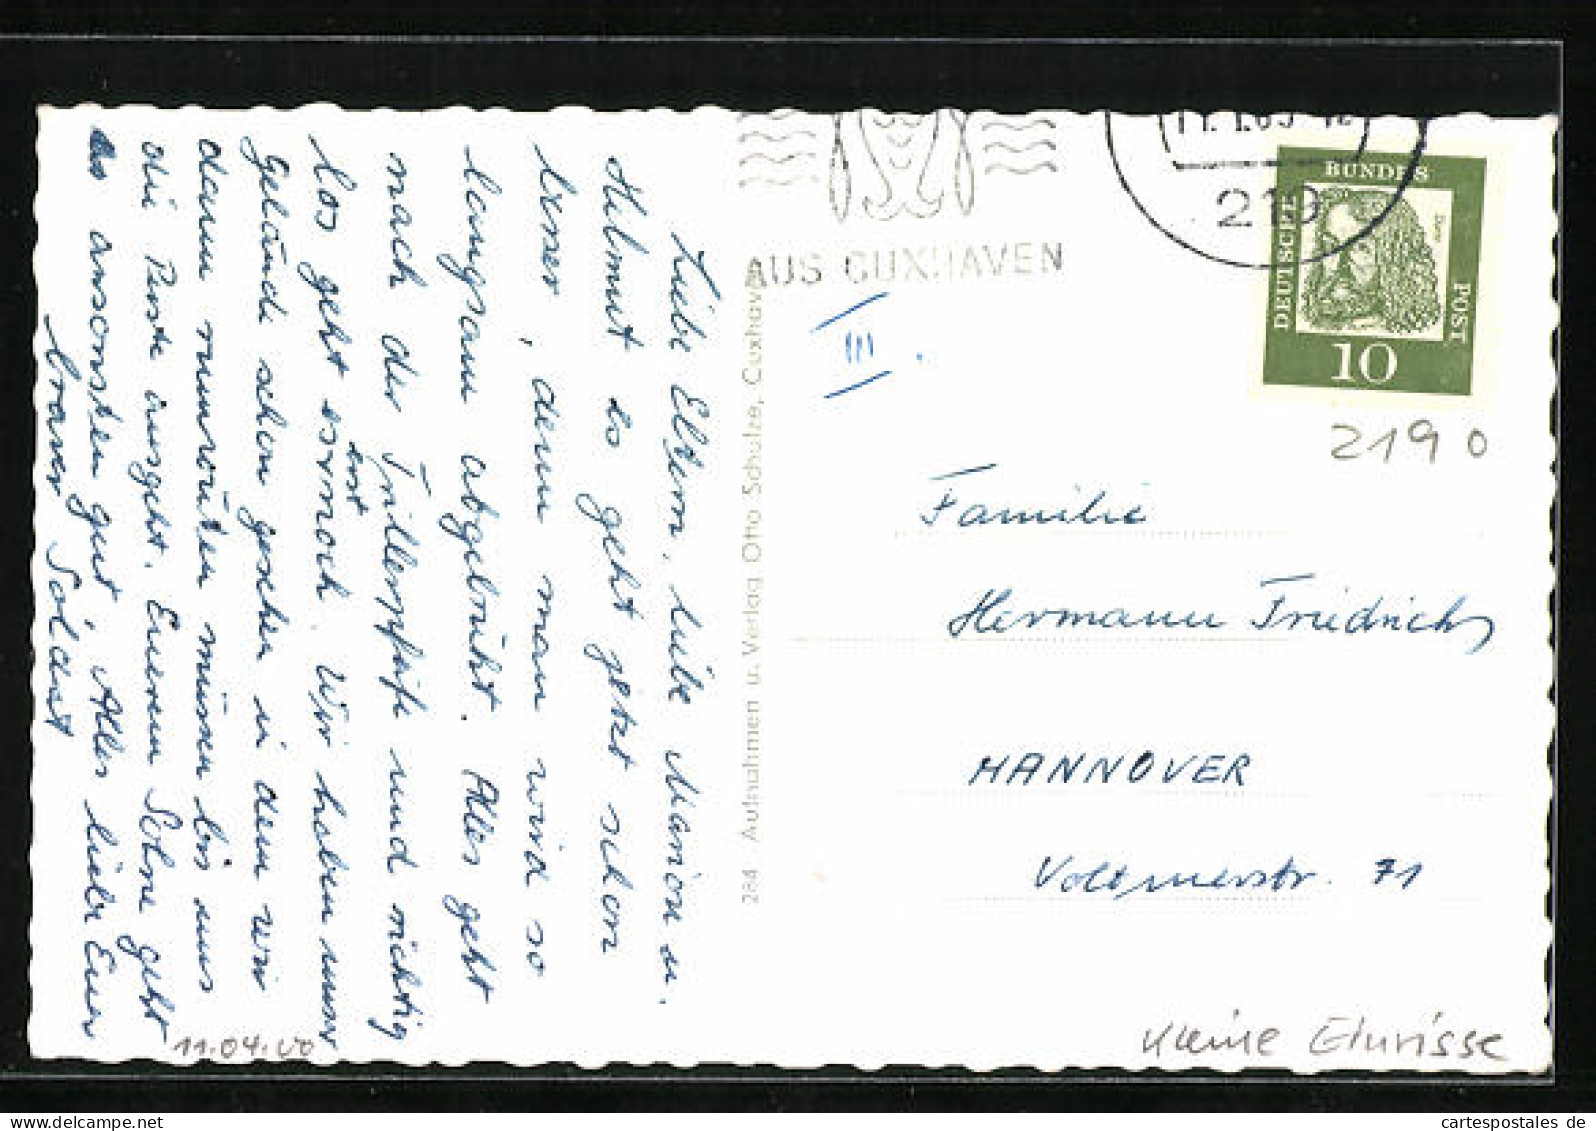 Liebe Eltern, liebe Marion u.
Helmut es geht jetzt schon
besser, denn man wird so
langsam abgebrüht. Alles geht
nach der Trillerpfeife und richtig
los geht es erst noch. Wir haben unser
Gelände schon gesehen in dem wir
dann rumrobben müssen bis uns
die Puste ausgeht. Eurem Sohne geht
es ansonsten gut, Alles liebe Euer
braver Soldat
11.04.00
284 Aufnahmen u. Verlag Otto Schulze, Cuxhaven
AUS CUXHAVEN
219
DEUTSCHE
BUNDES
POST
Dürer
10
III
2190
Familie
Hermann Friedrichs
HANNOVER
Voltmerstr. 71
kleine Einrisse
cartespostales de